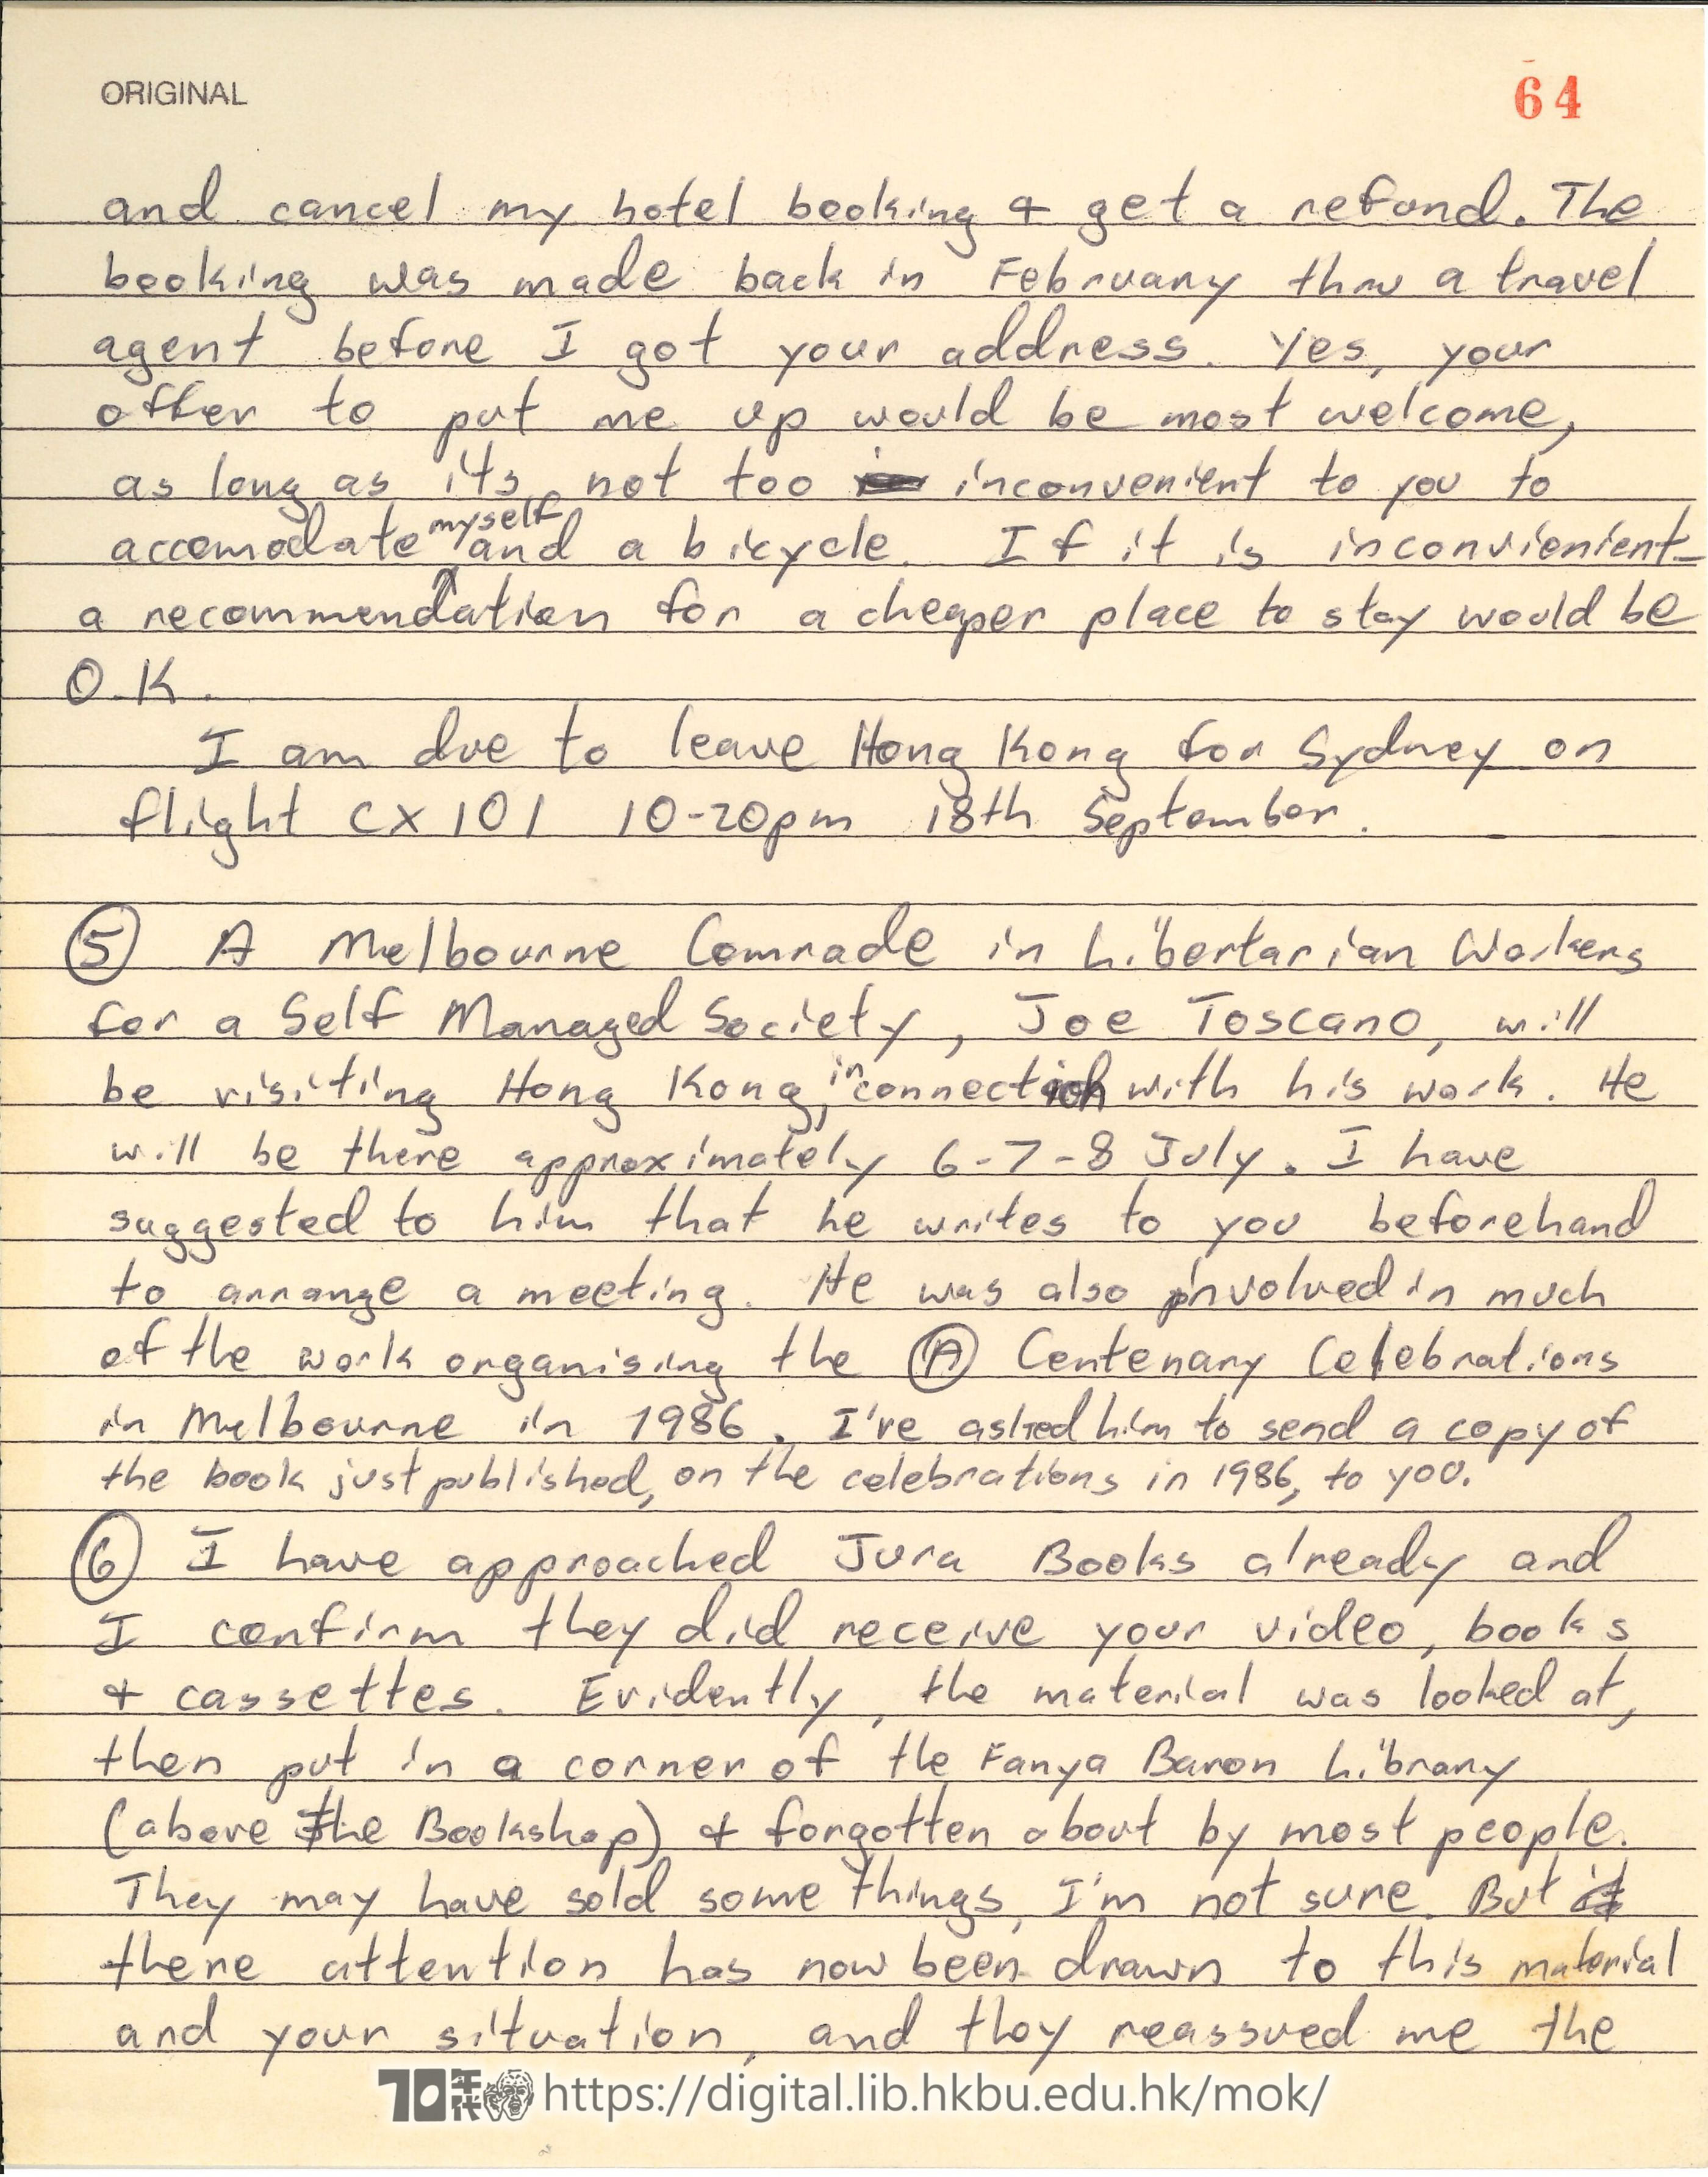 ORIGINAL
64
and cancel my hotel booking & get a refund. The
booking was made back in February thru a travel
agent before I got your address. Yes, your
offer to put me up would be most welcome,
as long as its not too inconvenient to you to
accomodate myself and a bicycle. If it is inconvienient -
a recommendation for a cheaper place to stay would be
O.K.
I am due to leave Hong Kong for Sydney on
flight CX 101 10-20pm 18th September.
⑤ A Melbourne Comrade in Libertarian Workers
for a Self Managed Society, Joe Toscano, will
be visiting Hong Kong, in connection with his work. He
will be there approximately 6-7-8 July. I have
suggested to him that he writes to you beforehand
to arrange a meeting. He was also involved in much
of the work organising the Ⓐ Centenary Celebrations
in Melbourne in 1986. I've asked him to send a copy of
the book just published, on the celebrations in 1986, to you.
⑥ I have approached Jura Books already and
I confirm they did receive your video, books
& cassettes. Evidently, the material was looked at,
then put in a corner of the Fanya Baron Library
(above the Bookshop) & forgotten about by most people.
They may have sold some things, I'm not sure. But
there attention has now been drawn to this material
and your situation, and they reassued me the
70年代 https://digital.lib.hkbu.edu.hk/mok/